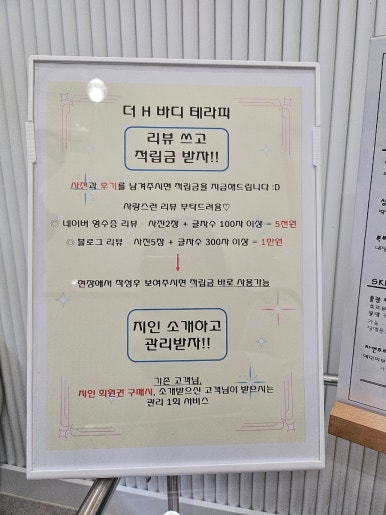 더 H 바디 테라피
리뷰 쓰고
적립금 받자!!
사진과 후기를 남겨주시면 적립금을 지급해드립니다 :D
사랑스런 리뷰 부탁드려용♡
◎ 네이버 영수증 리뷰 - 사진2장 + 글자수 100자 이상 = 5천원
◎ 블로그 리뷰 - 사진5장 + 글자수 300자 이상 = 1만원
*현장에서 작성후 보여주시면 적립금 바로 사용가능
지인 소개하고
관리받자!!
기존 고객님,
지인 회원권 구매시, 소개받으신 고객님이 받으시는
관리 1회 서비스